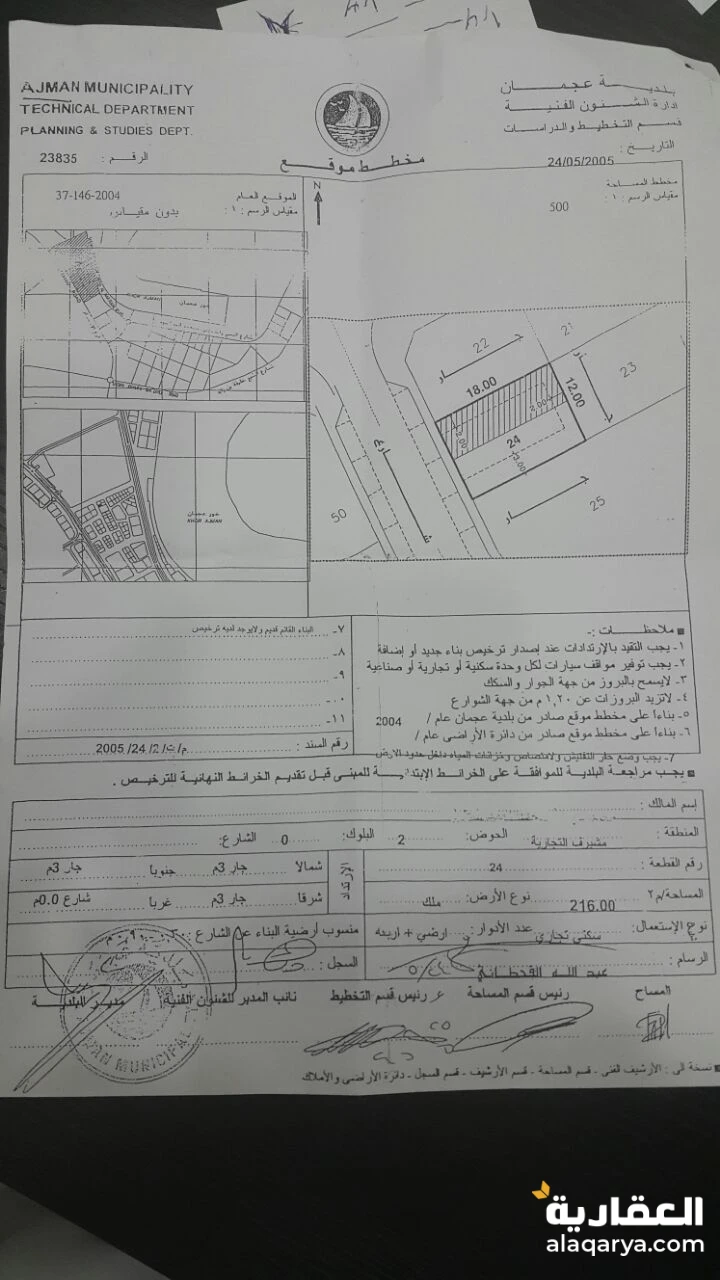 AJMAN MUNICIPALITY
TECHNICAL DEPARTMENT
PLANNING & STUDIES DEPT.
بلديـــة عجمـــان
إدارة الشـئـون الفنيـة
قسـم التخطيـط والدراسـات
الرقـم : 23835
مخطـط موقـع
التاريخ : 24/05/2005
الموقع العام 37-146-2004
مقياس الرسم : ١ : بدون مقياس
N
مخطط المساحة
مقياس الرسم : ١ : 500
خور عجمان
خور عجمان
KHOR AJMAN
22
21
23
جـــار
18.00
12.00
جـــار
2.00
2.00
24
3.00
شـــارع
جـــار
25
50
ملاحظـــات :-
١- يجب التقيد بالإرتدادات عند إصدار ترخيص بناء جديد أو إضافة
٢- يجب توفير مواقف سيارات لكل وحدة سكنية أو تجارية أو صناعية
٣- لايسمح بالبروز من جهة الجوار والسكك
٤- لاتزيد البروزات عن ١,٢٠ م من جهة الشوارع
٥- بناءاً على مخطط موقع صادر من بلدية عجمان عام / 2004
٦- بناءاً على مخطط موقع صادر من دائرة الأراضى عام /
7- يجب وضع حفر التفتيش والامتصاص وخزانات المياه داخل حدود الارض
٧- البناء القائم قديم ولايوجد لديه ترخيص
٨-
٩-
١٠-
١١-
رقم السند : م/ت/2/24/2005
يجـب مراجعة البلدية للموافقة على الخرائط الإبتدائيـة للمبنى قبل تقديم الخرائط النهائية للترخيـص .
إسم المالك :
المنطقة : مشيرف التجارية الحوض: 2 البلوك: 0 الشارع:
رقم القطعة : 24
المساحة/م٢ 216.00 نوع الأرض: ملك
الإرتداد
شمالا جار 3م جنوبا جار 3م
شرقا جار 3م غربا شارع 0.0م
نوع الإستعمال: سكني تجاري عدد الأدوار: ارضي + اربعه
منسوب أرضية البناء عن الشارع
الرسام : عبد الله القحطاني
السجل :
المساح
رئيس قسم المساحة
رئيس قسم التخطيط
نائب المدير للشئون الفنية
مدير البلدية
AJMAN MUNICIPAL
نسخة الى : الأرشيف الفنى - قسم المساحة - قسم الأرشيف - قسم السجل - دائرة الأراضى والأملاك
العقارية
alaqarya.com